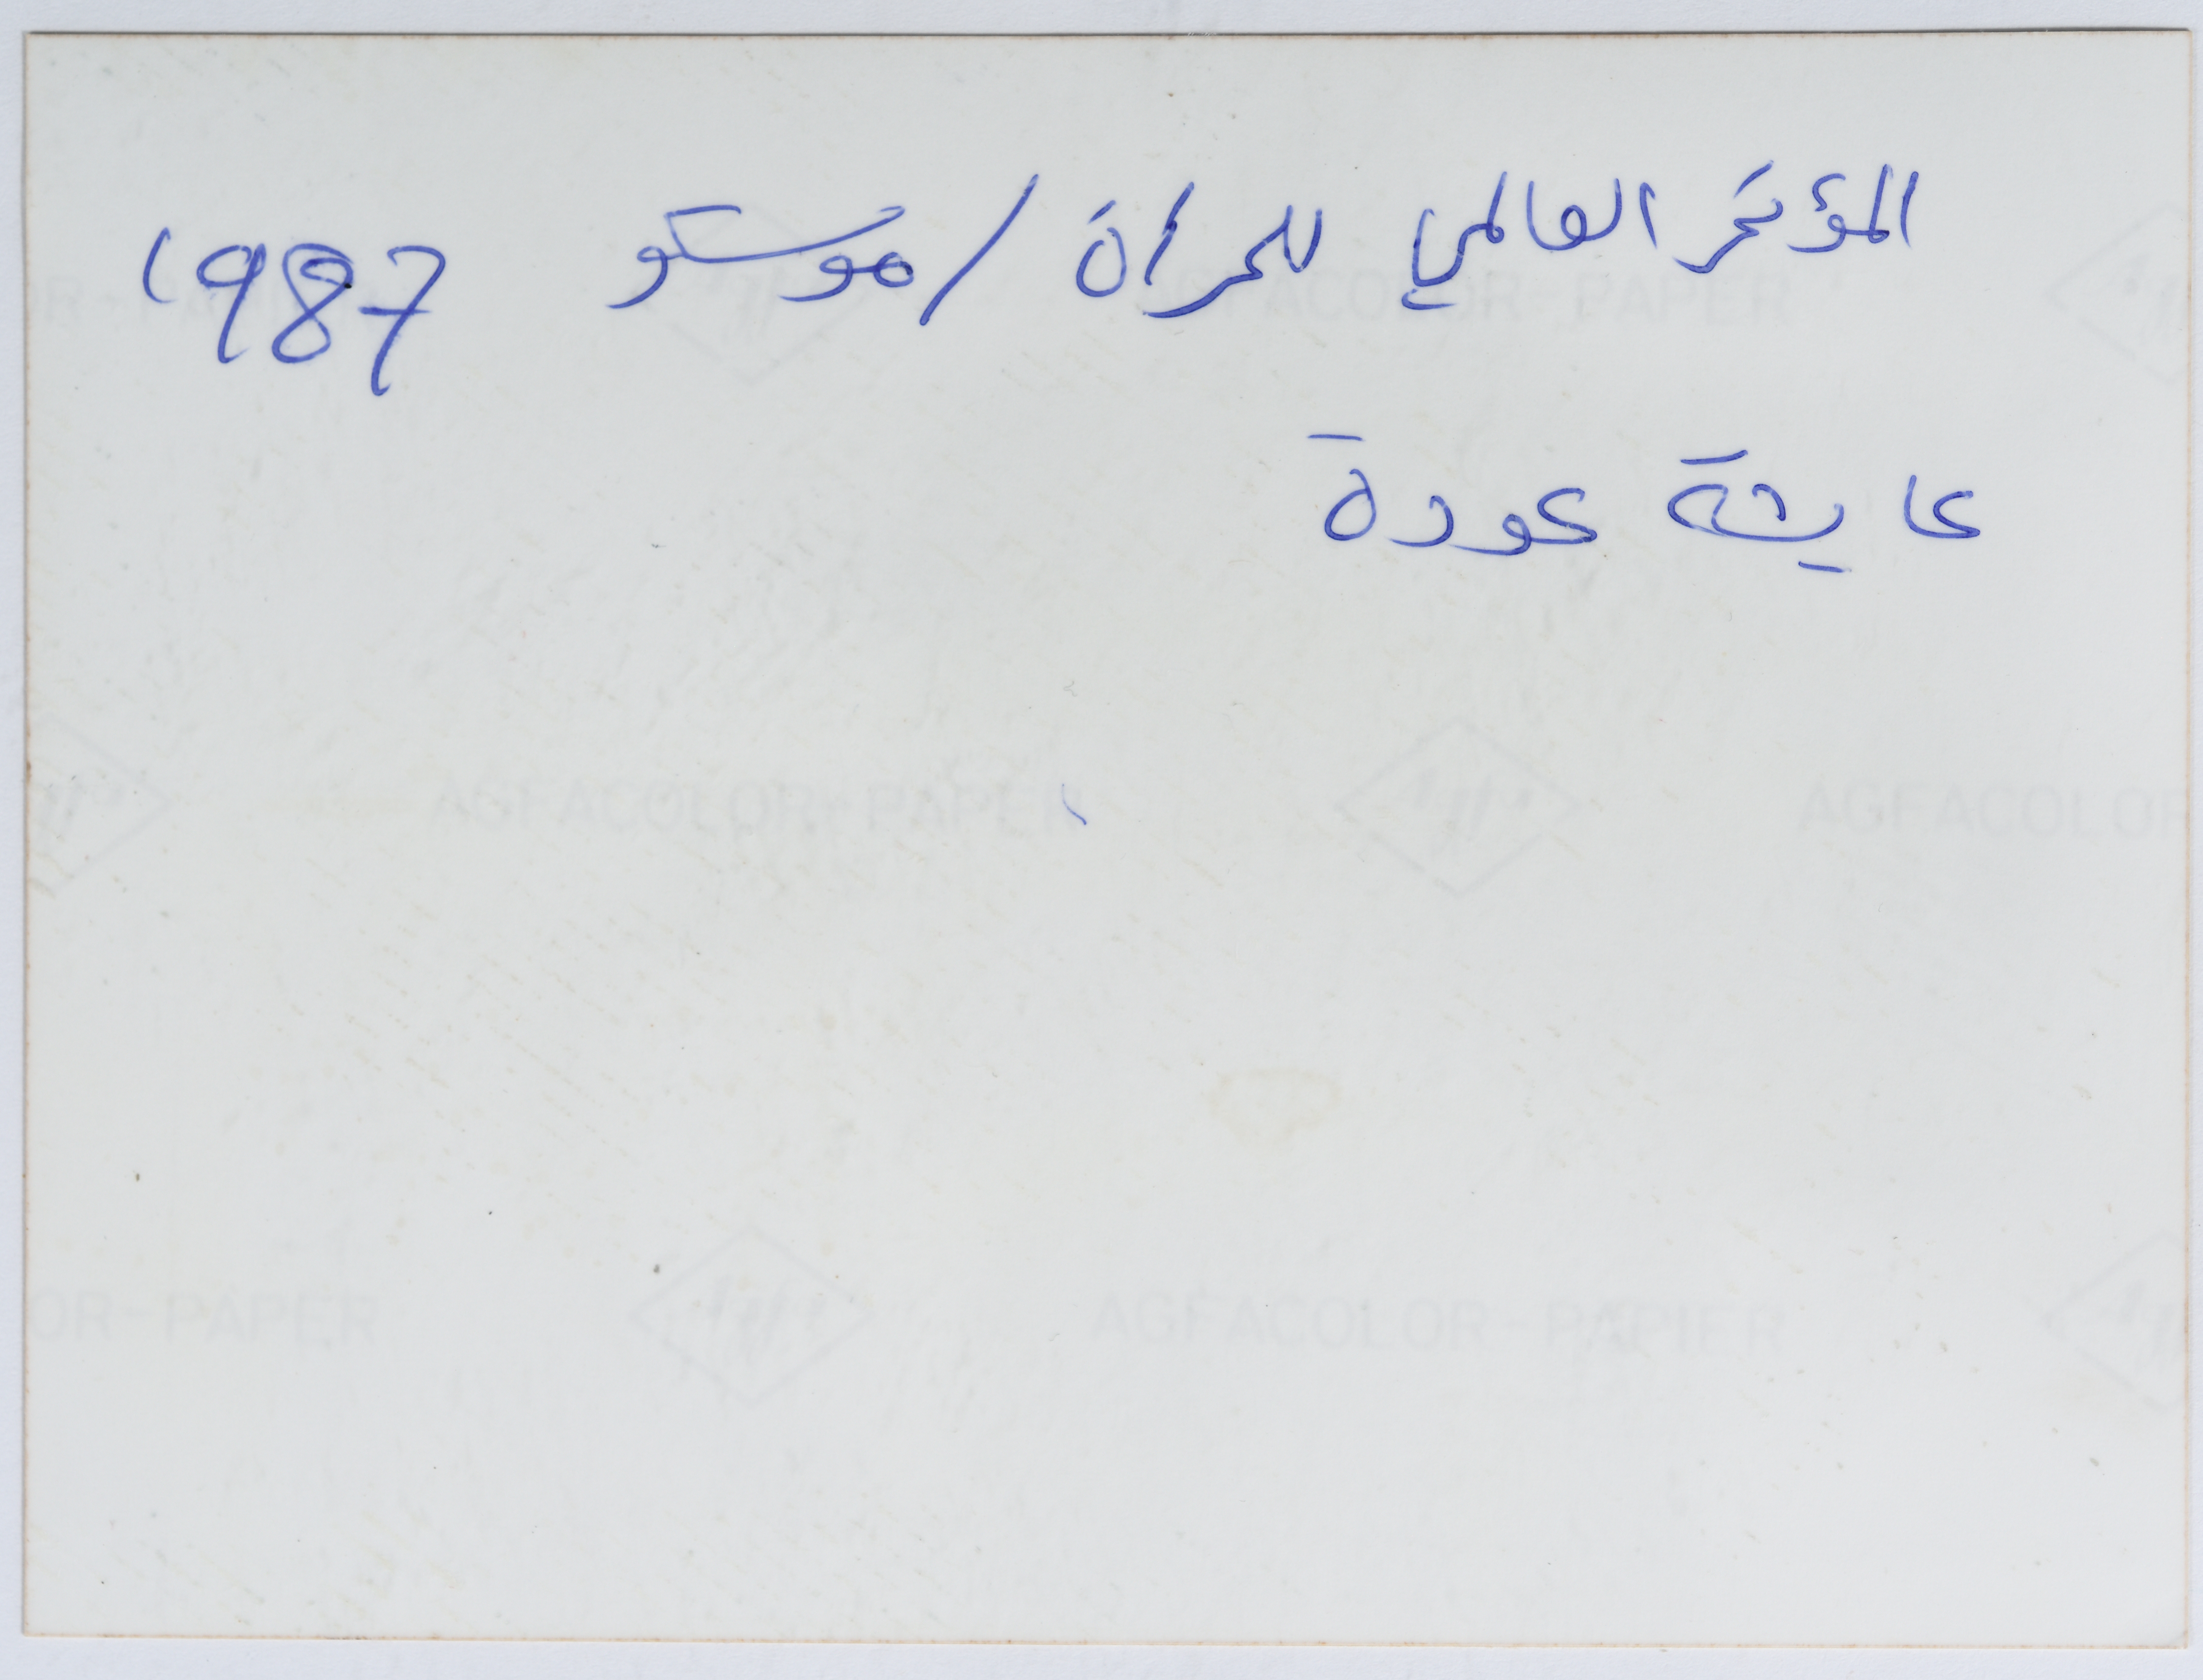 المؤتمر العالمي للمرأة / موسكو 1987
عايشة عودة
AGFACOLOR-PAPER
AGFACOLOR-PAPER
AGFACOLOR
OR-PAPER
AGFACOLOR-PAPIER